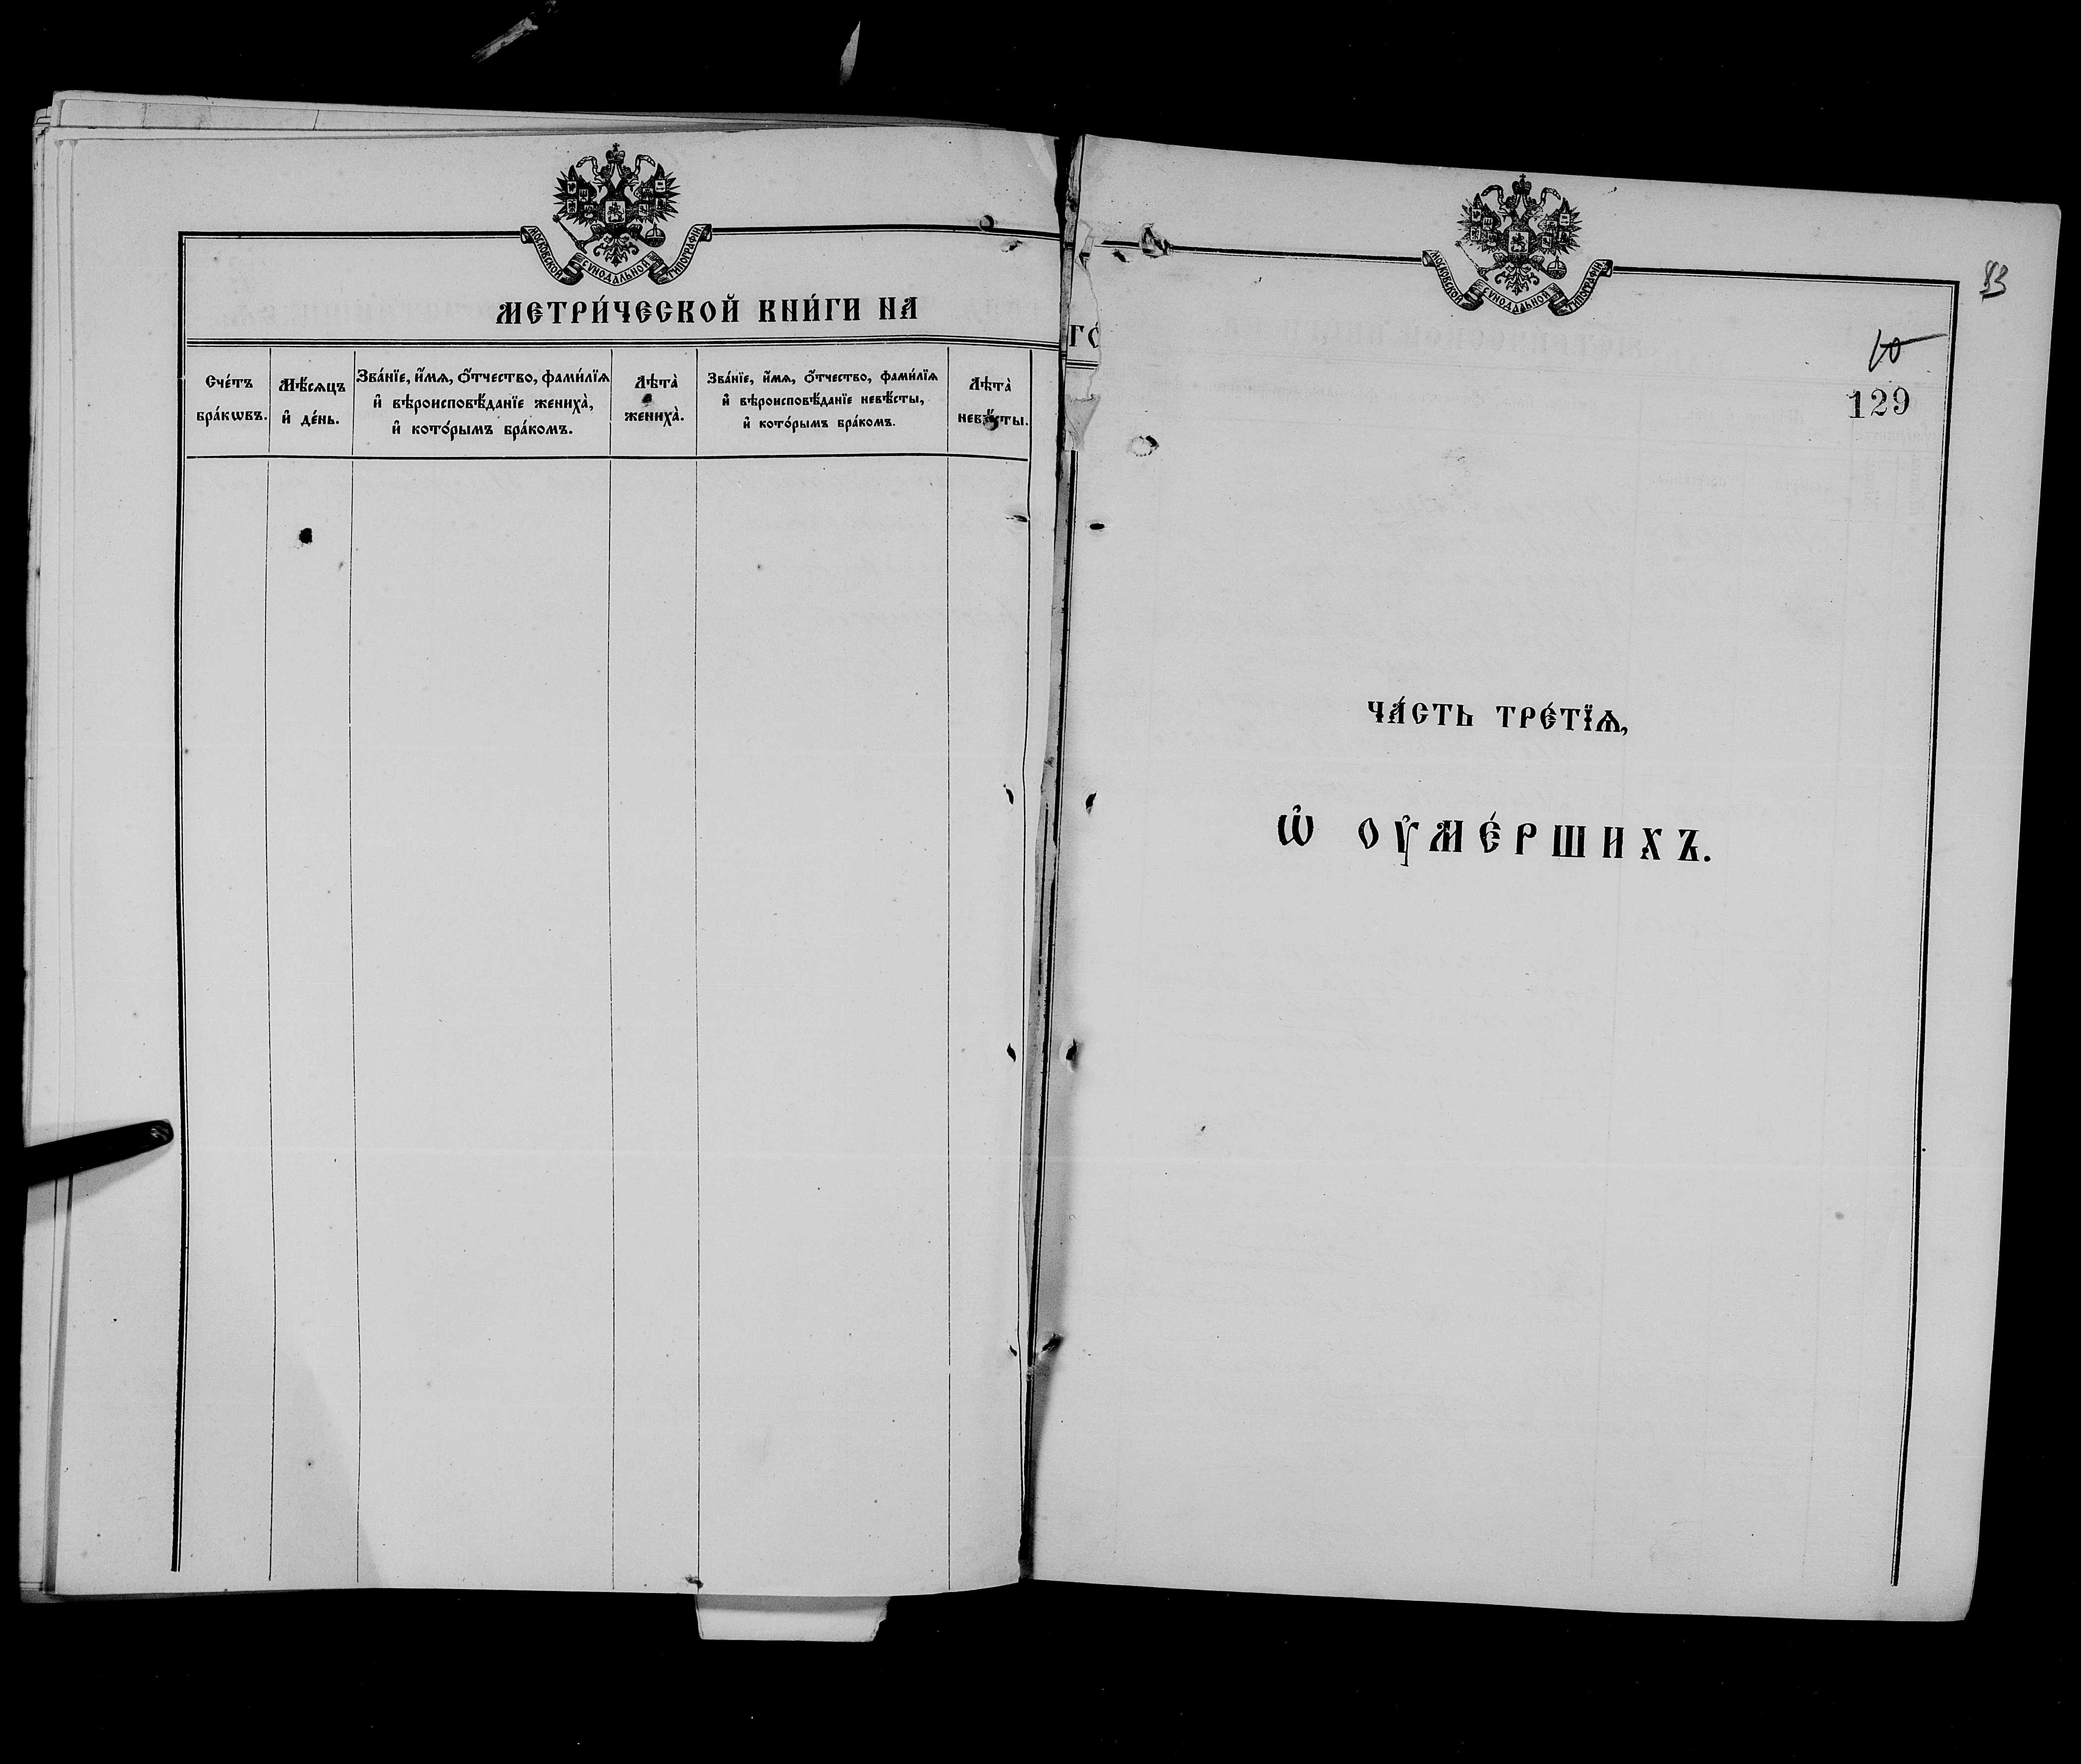 МОСКОВСКОЙ СѴНОДАЛЬНОЙ ТИПОГРАФІИ
МЕТРИ́ЧЕСКОЙ КНИ́ГИ НА
Сче́тъ
бра́кωвъ.
Мѣ́сѧцъ
и҆ де́нь.
Зва́нїе, и҆́мѧ, ѻ҆́тчество, фами́лїѧ
и҆ вѣроисповѣ́данїе жениха̀,
и҆ кото́рымъ бра́комъ.
Лѣта̀
жениха̀.
Зва́нїе, и҆́мѧ, ѻ҆́тчество, фами́лїѧ
и҆ вѣроисповѣ́данїе невѣ́сты,
и҆ кото́рымъ бра́комъ.
Лѣта̀
невѣ́сты.
МОСКОВСКОЙ СѴНОДАЛЬНОЙ ТИПОГРАФІИ
129
ЧА́СТЬ ТРЕ́ТЇѦ,
Ѡ҆ ОУ҆МЕ́РШИХЪ.